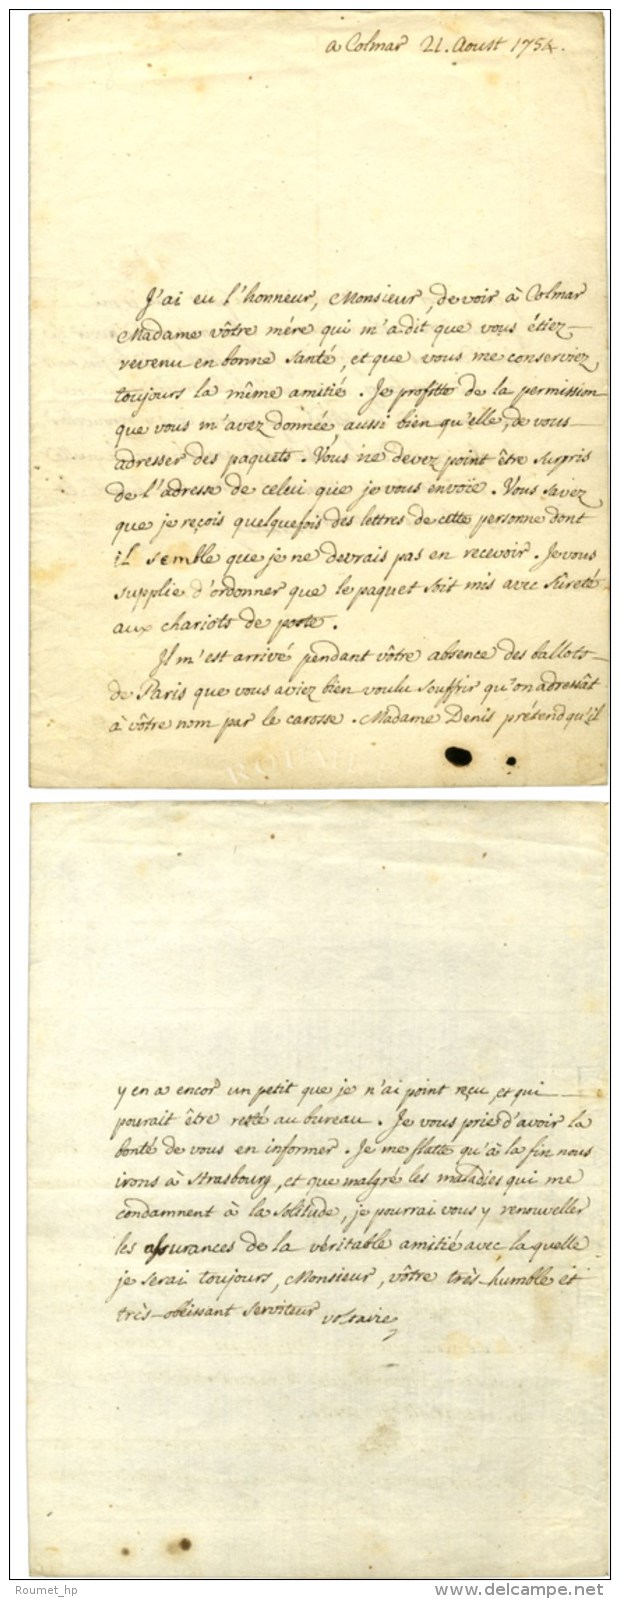 a Colmar 21. Aoust 1754.
J'ai eu l'honneur, Monsieur, de voir à Colmar
Madame vôtre mére qui m'a dit que vous étiez
revenu en bonne santé, et que vous me conserviez
toujours la même amitié. Je profitte de la permission
que vous m'avez donnée, aussi bien qu'elle, de vous
adresser des paquets. Vous ne devez point être surpris
de l'adresse de celui que je vous envoïe. Vous savez
que je reçois quelquefois des lettres de cette personne dont
il semble que je ne devrais pas en recevoir. Je vous
supplie d'ordonner que le paquet soit mis avec sûreté
aux chariots de poste.
Il m'est arrivé pendant vôtre absence des ballots
de Paris que vous aviez bien voulu souffrir qu'on adressât
à vôtre nom par le carosse. Madame Denis prétend qu'il
y en a encor un petit que je n'ai point reçu et qui
pourait être resté au bureau. Je vous prie d'avoir la
bonté de vous en informer. Je me flatte qu'à la fin nous
irons à Strasbourg, et que malgré les maladies qui me
condamnent à la solitude, je pourrai vous y renouveller
les assurances de la véritable amitié avec laquelle
je serai toujours, Monsieur, vôtre très-humble et
très-obéissant serviteur voltaire
Roumet_hp
www.delcampe.net